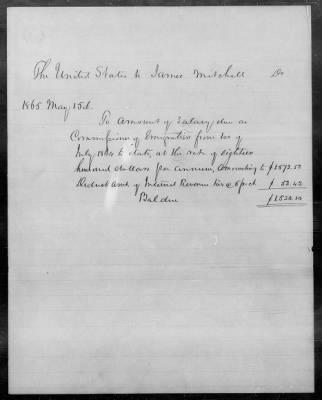 The United States to James Mitchell Dr
1865 May 15th.
To Amount of Salary, due as
Commissioner of Emigration from 1st of
July 1864 to date, at the rate of eighteen
hundred dollars per annum, amounting to $1572.50
Deduct amt of Internal Revenue tax @ 5 pr ct $ 52.40
Bal due $1520.10